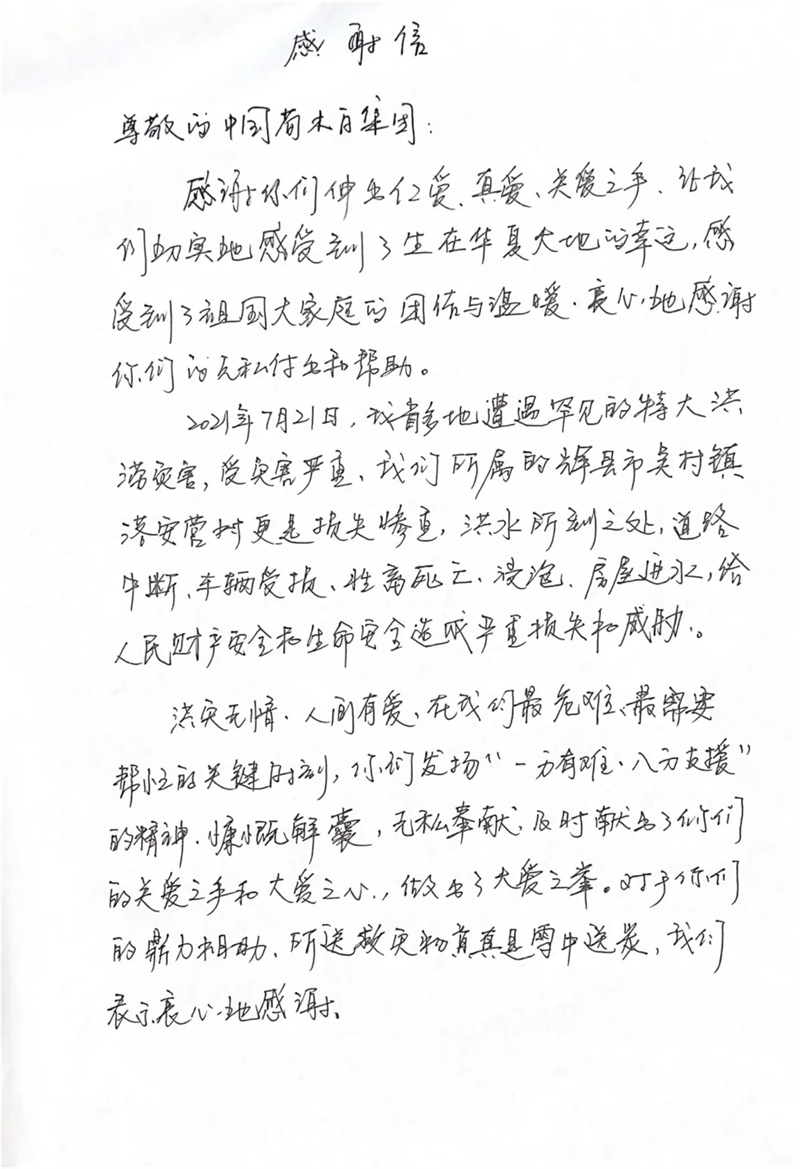 感谢信
尊敬的中国葡木百集团：
感谢你们伸出仁爱、真爱、关爱之手、让我
们切实地感受到了生在华夏大地的幸运，感
受到了祖国大家庭的团结与温暖．衷心地感谢
你们的无私付出和帮助。
2021年7月21日，我省多地遭遇罕见的特大洪
涝灾害，受灾害严重、我们所属的辉县市吴村镇
落安营村更是损失惨重，洪水所到之处，道路
中断、车辆受损、牲畜死亡、浸泡、房屋进水，给
人民财产安全和生命安全造成严重损失和威胁。
洪灾无情．人间有爱、在我们最危难、最需要
帮忙的关键时刻，你们发扬“一方有难．八方支援”
的精神．慷慨解囊，无私奉献、及时献出了你们
的关爱之手和大爱之心，做出了大爱之举。对于你们
的鼎力相助、所送救灾物资真是雪中送炭，我们
表示衷心地感谢、